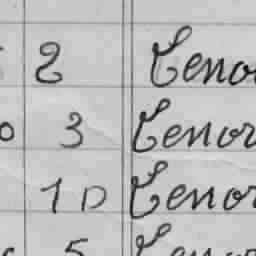 2 Tenor
o 3 Tenor
1 D Tenor
5